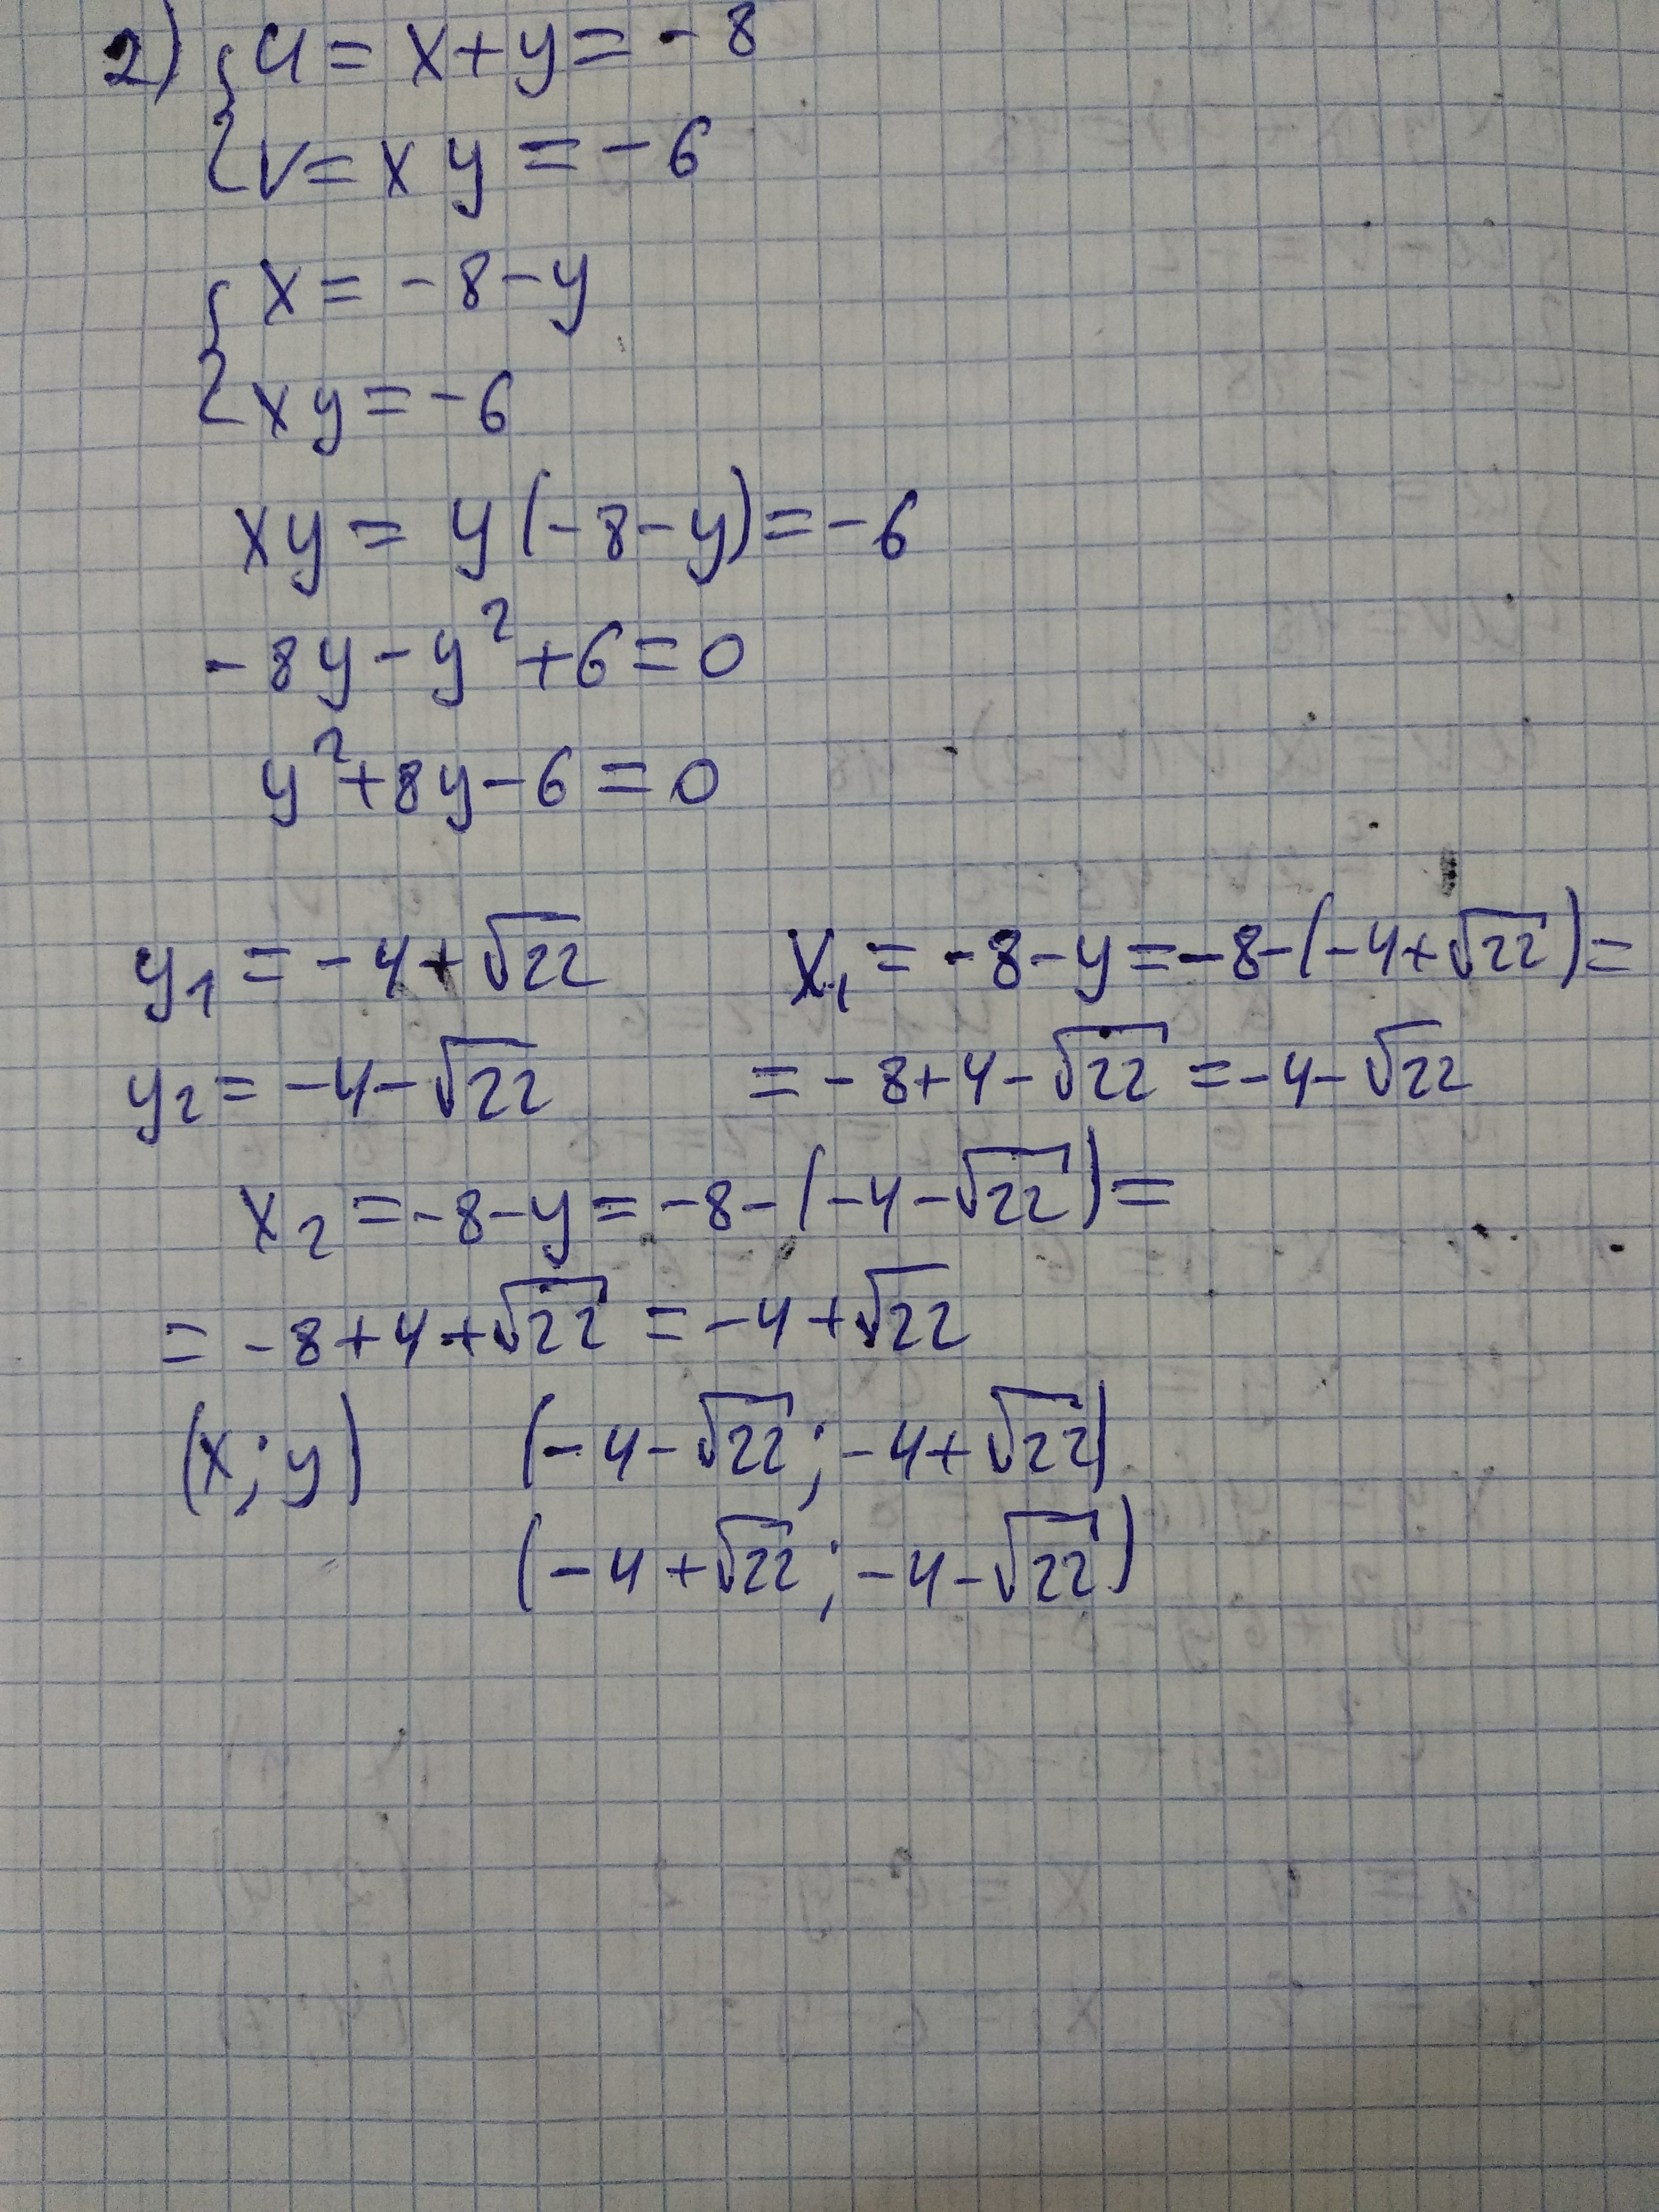 2) { u = x + y = -8
{ v = x y = -6
{ x = -8 - y
{ xy = -6
xy = y(-8-y) = -6
-8y - y² + 6 = 0
y² + 8y - 6 = 0
y₁ = -4 + √22 x₁ = -8 - y = -8 - (-4 + √22) =
y₂ = -4 - √22 = -8 + 4 - √22 = -4 - √22
x₂ = -8 - y = -8 - (-4 - √22) =
= -8 + 4 + √22 = -4 + √22
(x; y) (-4 - √22; -4 + √22)
(-4 + √22; -4 - √22)